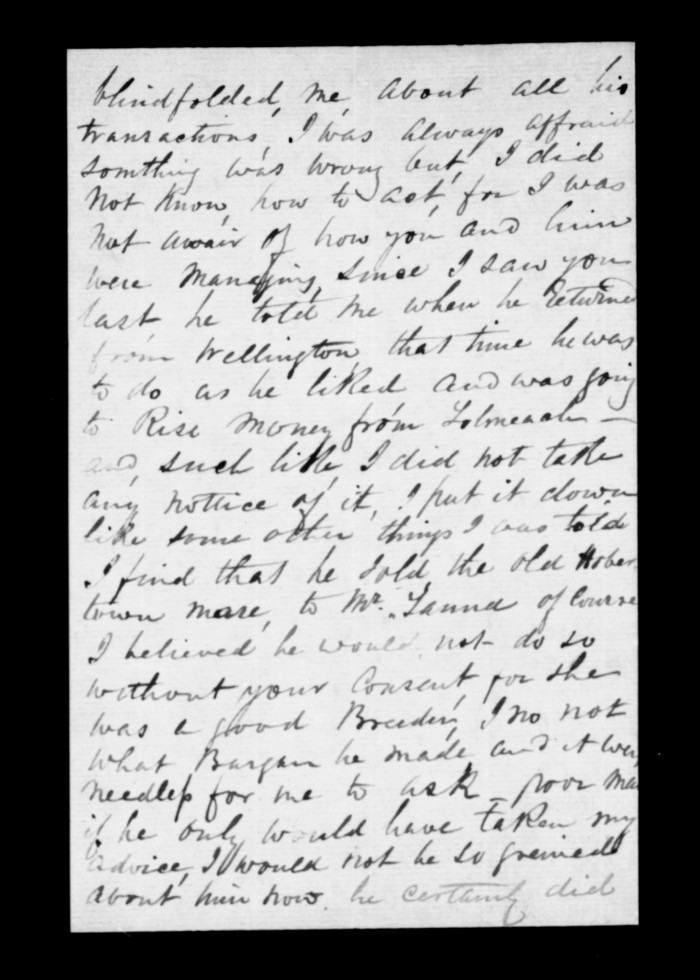 blindfolded, me, about all his
transactions, I was always affraid
somthing was wrong but, I did
not know, how to act, for I was
not awair of how you and him
were managing, since I saw you
last he told me when he returned
from Wellington, that time he was
to do as he liked and was going
to Rise money from
and, such like, I did not take
any nottice of it, I put it down
like some other things I was told
I find that he sold the old Hobar
town mare, to Mr. of course
I believed he would not do so
without your consent, for she
was a good Breeder, I no not
what Bargan he made, and it was
needless for me to ask - poor man
if he only would have taken my
advice, I would not be so greived
about him now. he certainly did